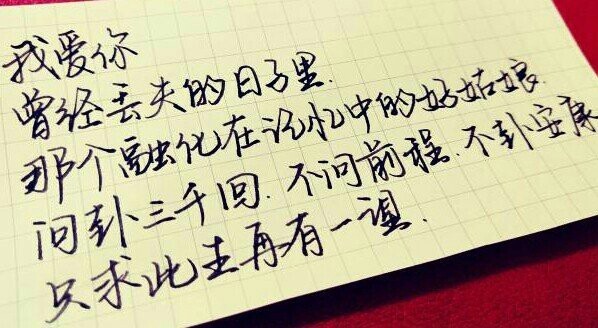 我爱你
曾经丢失的日子里.
那个融化在记忆中的好姑娘.
问卦三千回.不问前程.不卦安康
只求此生再有一遇.